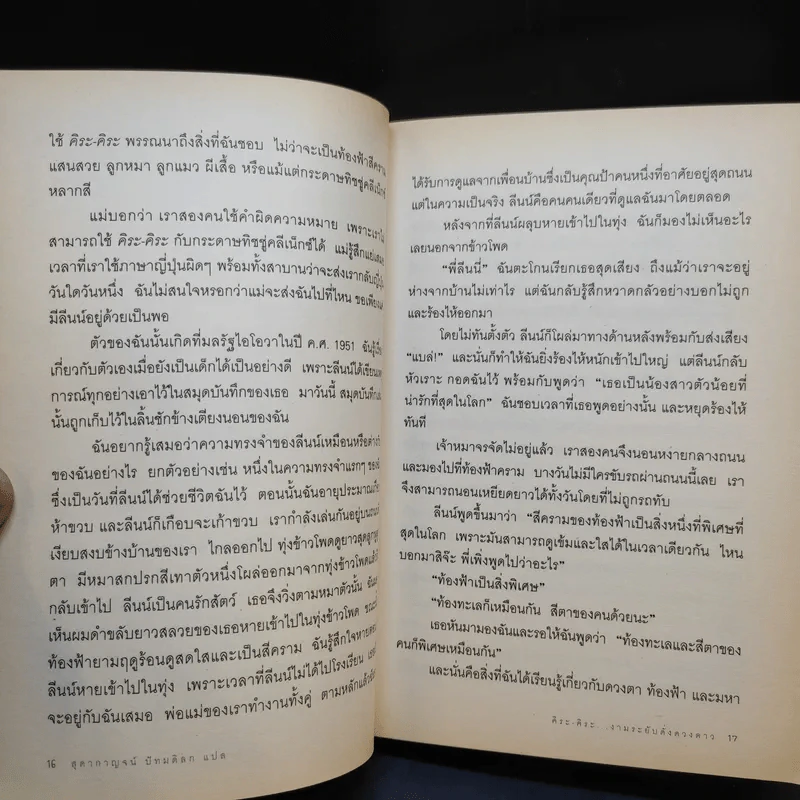 ใช้ คิระ-คิระ พรรณนาถึงสิ่งที่ฉันชอบ ไม่ว่าจะเป็นท้องฟ้าสีคราม
แสนสวย ลูกหมา ลูกแมว ผีเสื้อ หรือแม้แต่กระดาษทิชชู่คลีเน็กซ์
หลากสี
แม่บอกว่า เราสองคนใช้คำผิดความหมาย เพราะเรา
สามารถใช้ คิระ-คิระ กับกระดาษทิชชู่คลีเน็กซ์ได้ แม่รู้สึกแย่
เวลาที่เราใช้ภาษาญี่ปุ่นผิดๆ พร้อมทั้งสาบานว่าจะส่งเรากลับ
วันใดวันหนึ่ง ฉันไม่สนใจหรอกว่าแม่จะส่งฉันไปที่ไหน ขอเพียง
มีลีนน์อยู่ด้วยเป็นพอ
ตัวของฉันนั้นเกิดที่มลรัฐไอโอวาในปี ค.ศ. 1951 ฉัน
เกี่ยวกับตัวเองเมื่อยังเป็นเด็กได้เป็นอย่างดี เพราะลีนน์ได้เขียน
การณ์ทุกอย่างเอาไว้ในสมุดบันทึกของเธอ มาวันนี้ สมุดบันทึก
นั้นถูกเก็บไว้ในลิ้นชักข้างเตียงนอนของฉัน
ฉันอยากรู้เสมอว่าความทรงจำของลีนน์เหมือนหรือต่าง
ของฉันอย่างไร ยกตัวอย่างเช่น หนึ่งในความทรงจำแรกๆ ของ
ซึ่งเป็นวันที่ลีนน์ได้ช่วยชีวิตฉันไว้ ตอนนั้นฉันอายุประมาณ
ห้าขวบ และลีนน์ก็เกือบจะเก้าขวบ เรากำลังเล่นกันอยู่บนถนน
เงียบสงบข้างบ้านของเรา ไกลออกไป ทุ่งข้าวโพดดูยาวสุดลูกหู
ตา มีหมาสกปรกสีเทาตัวหนึ่งโผล่ออกมาจากทุ่งข้าวโพดแล้ว
กลับเข้าไป ลีนน์เป็นคนรักสัตว์ เธอจึงวิ่งตามหมาตัวนั้น
เห็นผมดำขลับยาวสลวยของเธอหายเข้าไปในทุ่งข้าวโพด
ท้องฟ้ายามฤดูร้อนดูสดใสและเป็นสีคราม ฉันรู้สึกใจหาย
ลีนน์หายเข้าไปในทุ่ง เพราะเวลาที่ลีนน์ไม่ได้ไปโรงเรียน
จะอยู่กับฉันเสมอ พ่อแม่ของเราทำงานทั้งคู่ ตามหลักแล้ว
16 สุดากาญจน์ ปัทมดิลก แปล
ได้รับการดูแลจากเพื่อนบ้านซึ่งเป็นคุณป้าคนหนึ่งที่อาศัยอยู่สุดถนน
แต่ในความเป็นจริง ลีนน์คือคนคนเดียวที่ดูแลฉันมาโดยตลอด
หลังจากที่ลีนน์ผลุบหายเข้าไปในทุ่ง ฉันก็มองไม่เห็นอะไร
เลยนอกจากข้าวโพด
“พี่ลีนนี่” ฉันตะโกนเรียกเธอสุดเสียง ถึงแม้ว่าเราจะอยู่
ห่างจากบ้านไม่เท่าไร แต่ฉันกลับรู้สึกหวาดกลัวอย่างบอกไม่ถูก
และร้องไห้ออกมา
โดยไม่ทันตั้งตัว ลีนน์ก็โผล่มาทางด้านหลังพร้อมกับส่งเสียง
“แบล่!” และนั่นก็ทำให้ฉันยิ่งร้องไห้หนักเข้าไปใหญ่ แต่ลีนน์กลับ
หัวเราะ กอดฉันไว้ พร้อมกับพูดว่า “เธอเป็นน้องสาวตัวน้อยที่
น่ารักที่สุดในโลก” ฉันชอบเวลาที่เธอพูดอย่างนั้น และหยุดร้องไห้
ทันที
เจ้าหมาจรจัดไม่อยู่แล้ว เราสองคนจึงนอนหงายกลางถนน
และมองไปที่ท้องฟ้าคราม บางวันไม่มีใครขับรถผ่านถนนนี้เลย เรา
จึงสามารถนอนเหยียดยาวได้ทั้งวันโดยที่ไม่ถูกรถทับ
ลีนน์พูดขึ้นมาว่า “สีครามของท้องฟ้าเป็นสิ่งหนึ่งที่พิเศษที่
สุดในโลก เพราะมันสามารถดูเข้มและใสได้ในเวลาเดียวกัน ไหน
บอกมาสิจ๊ะ พี่เพิ่งพูดไปว่าอะไร”
“ท้องฟ้าเป็นสิ่งพิเศษ”
“ท้องทะเลก็เหมือนกัน สีตาของคนด้วยนะ”
เธอหันมามองฉันและรอให้ฉันพูดว่า “ท้องทะเลและสีตาของ
คนก็พิเศษเหมือนกัน”
และนั่นคือสิ่งที่ฉันได้เรียนรู้เกี่ยวกับดวงตา ท้องฟ้า และมหา
คิระ-คิระ...งามระยับดั่งดวงดาว 17